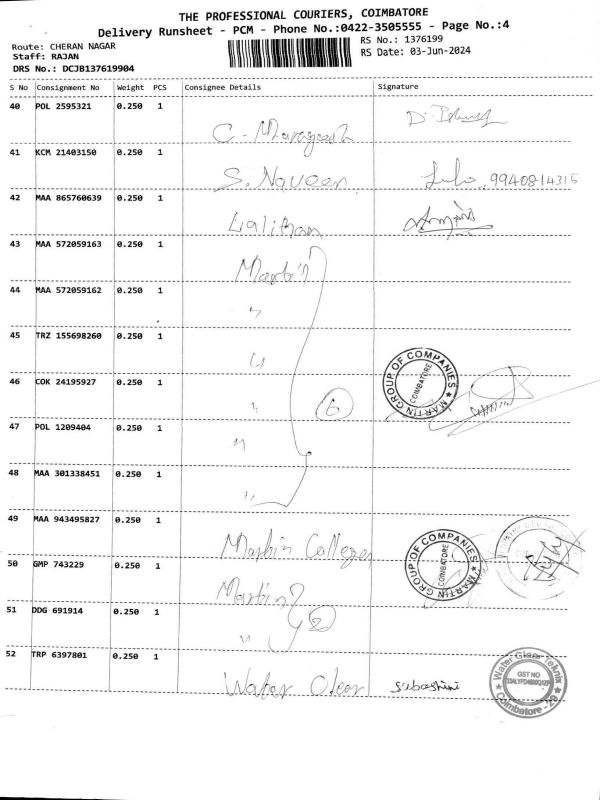 THE PROFESSIONAL COURIERS, COIMBATORE
Delivery Runsheet - PCM - Phone No.:0422-3505555 - Page No.:4
Route: CHERAN NAGAR
RS No.: 1376199
Staff: RAJAN
RS Date: 03-Jun-2024
DRS No.: DCJB137619904
S No Consignment No Weight PCS Consignee Details Signature
40 POL 2595321 0.250 1
41 KCM 21403150 0.250 1 S. Naveen 9940814315
42 MAA 865760639 0.250 1 Lalithan
43 MAA 572059163 0.250 1 Martin
44 MAA 572059162 0.250 1 "
45 TRZ 155698260 0.250 1 "
46 COK 24195927 0.250 1 " 6
MARTIN GROUP OF COMPANIES ★ COIMBATORE
47 POL 1209404 0.250 1 "
48 MAA 301338451 0.250 1 "
49 MAA 943495827 0.250 1 Martin College
MARTIN GROUP OF COMPANIES ★ COIMBATORE
50 GMP 743229 0.250 1 Martin
51 DDG 691914 0.250 1 " 2
52 TRP 6397801 0.250 1 Water Clear subashini
Water Clear Teknix
GST NO
Coimbatore - 29